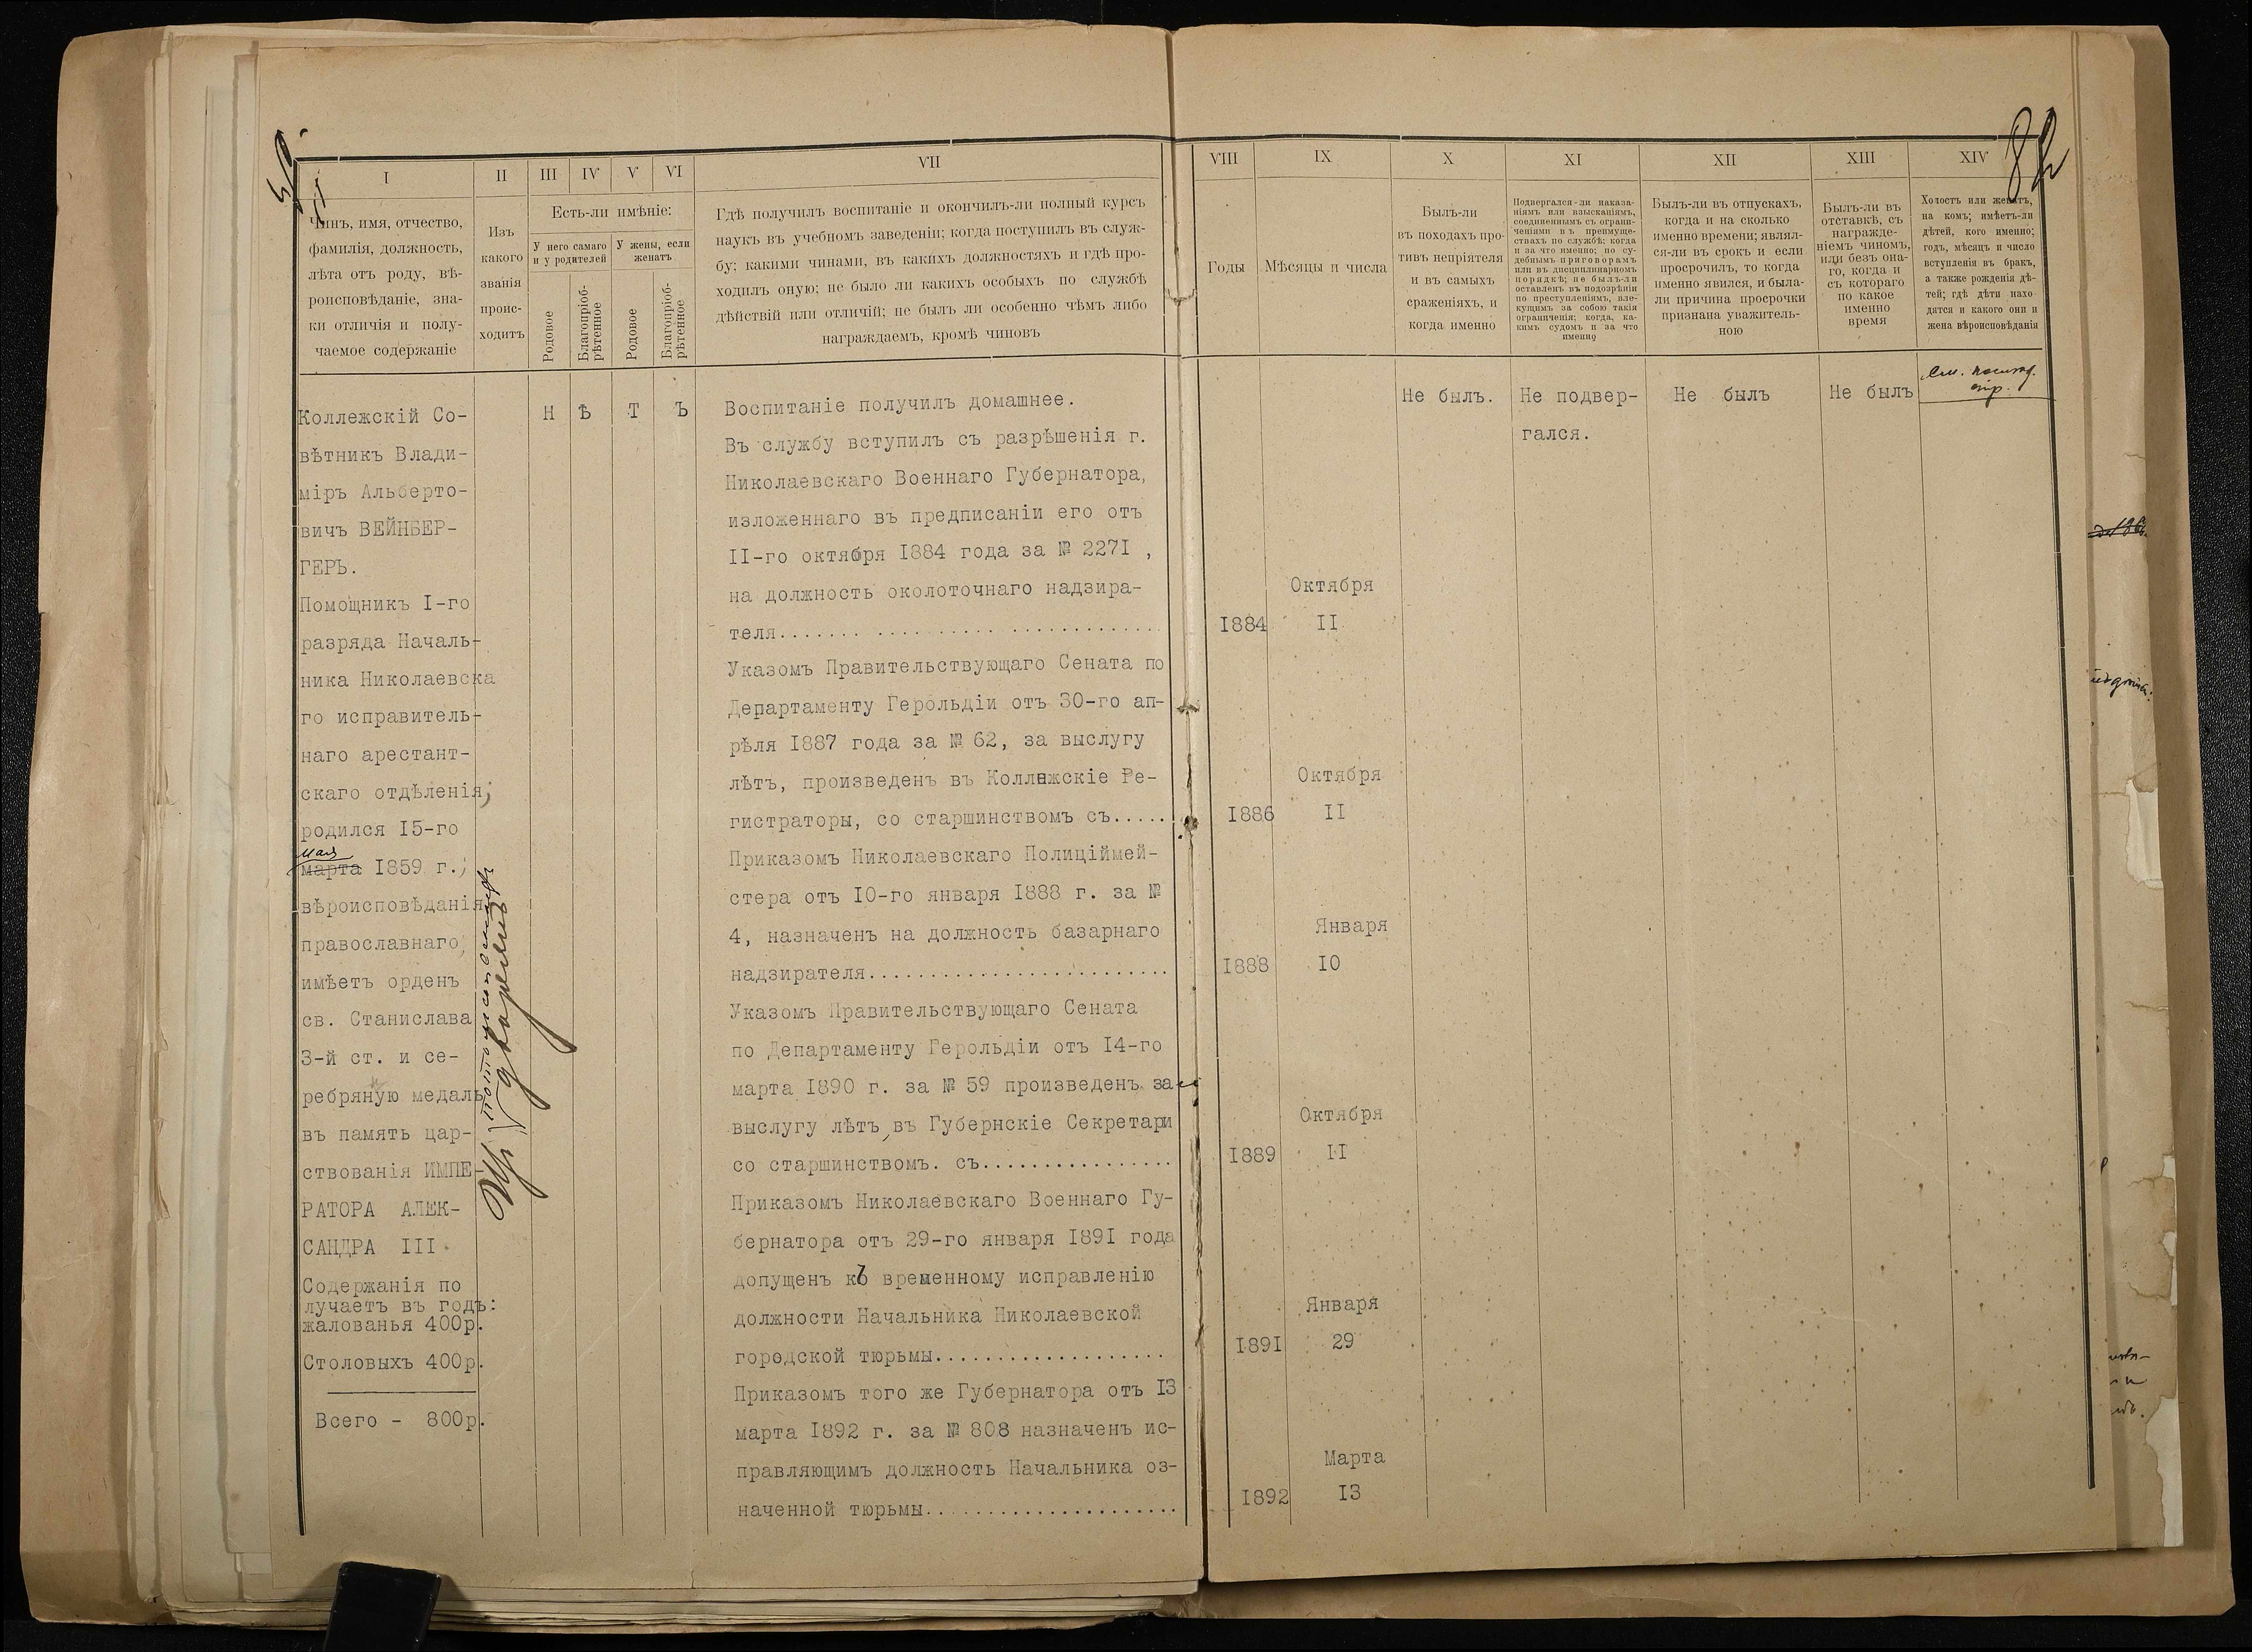 82
I
II
III
IV
V
VI
VII
VIII
IX
X
XI
XII
XIII
XIV
Чинъ, имя, отчество,
фамилія, должность,
лѣта отъ роду, вѣ-
роисповѣданіе, зна-
ки отличія и полу-
чаемое содержаніе
Изъ
какого
званія
проис-
ходитъ
Есть-ли имѣніе:
У него самаго
и у родителей
У жены, если
женатъ
Родовое
Благопріоб-
рѣтенное
Родовое
Благопріоб-
рѣтенное
Гдѣ получилъ воспитаніе и окончилъ-ли полный курсъ
наукъ въ учебномъ заведеніи; когда поступилъ въ служ-
бу; какими чинами, въ какихъ должностяхъ и гдѣ про-
ходилъ оную; не было ли какихъ особыхъ по службѣ
дѣйствій или отличій; не былъ ли особенно чѣмъ либо
награждаемъ, кромѣ чиновъ
Годы
Мѣсяцы и числа
Былъ-ли
въ походахъ про-
тивъ непріятеля
и въ самыхъ
сраженіяхъ, и
когда именно
Подвергался-ли наказа-
ніямъ или взысканіямъ,
соединеннымъ съ ограни-
ченіями въ преимуще-
ствахъ по службѣ; когда
и за что именно; по су-
дебнымъ приговорамъ
или въ дисциплинарномъ
порядкѣ; не былъ-ли
оставленъ въ подозрѣніи
по преступленіямъ, вле-
кущимъ за собою такія
ограниченія; когда, ка-
кимъ судомъ и за что
именно
Былъ-ли въ отпускахъ,
когда и на сколько
именно времени; являл-
ся-ли въ срокъ и если
просрочилъ, то когда
именно явился, и была-
ли причина просрочки
признана уважитель-
ною
Былъ-ли въ
отставкѣ, съ
награжде-
ніемъ чиномъ,
или безъ она-
го, когда и
съ котораго
по какое
именно
время
Холостъ или женатъ,
на комъ; имѣетъ-ли
дѣтей, кого именно;
годъ, мѣсяцъ и число
вступленія въ бракъ,
а также рожденія дѣ-
тей; гдѣ дѣти нахо-
дятся и какого они и
жена вѣроисповѣданія
Коллежскій Со-
вѣтникъ Влади-
міръ Альберто-
вичъ ВЕЙНБЕР-
ГЕРЪ.
Помощникъ I-го
разряда Началь-
ника Николаевска
го исправитель-
наго арестант-
скаго отдѣленія,
родился 15-го
мая
марта 1859 г.,
вѣроисповѣданія
православнаго,
имѣетъ орденъ
св. Станислава
3-й ст. и се-
ребряную медаль
въ память цар-
ствованія ИМПЕ-
РАТОРА АЛЕК-
САНДРА III.
Содержанія по
лучаетъ въ годъ:
жалованья 400р.
Столовыхъ 400р.
Всего - 800р.
Изъ потомственныхъ
дворянъ
Н Ѣ Т Ъ
Воспитаніе получилъ домашнее.
Въ службу вступилъ съ разрѣшенія г.
Николаевскаго Военнаго Губернатора,
изложеннаго въ предписаніи его отъ
II-го октября I884 года за № 227I ,
на должность околоточнаго надзира-
теля.............................
Указомъ Правительствующаго Сената по
Департаменту Герольдіи отъ 30-го ап-
рѣля I887 года за № 62, за выслугу
лѣтъ, произведенъ въ Коллежскіе Ре-
гистраторы, со старшинствомъ съ.....
Приказомъ Николаевскаго Полиціймей-
стера отъ I0-го января I888 г. за №
4, назначенъ на должность базарнаго
надзирателя.........................
Указомъ Правительствующаго Сената
по Департаменту Герольдіи отъ I4-го
марта I890 г. за № 59 произведенъ за
выслугу лѣтъ въ Губернскіе Секретари
со старшинствомъ. съ................
Приказомъ Николаевскаго Военнаго Гу-
бернатора отъ 29-го января I89I года
допущенъ къ временному исправленію
должности Начальника Николаевской
городской тюрьмы...................
Приказомъ того же Губернатора отъ I3
марта I892 г. за № 808 назначенъ ис-
правляющимъ должность Начальника оз-
наченной тюрьмы.....................
Октября
I884 II
Октября
I886 II
Января
I888 I0
Октября
I889 II
Января
I89I 29
Марта
I892 I3
Не былъ.
Не подвер-
гался.
Не былъ
Не былъ
См. послѣд.
стр.